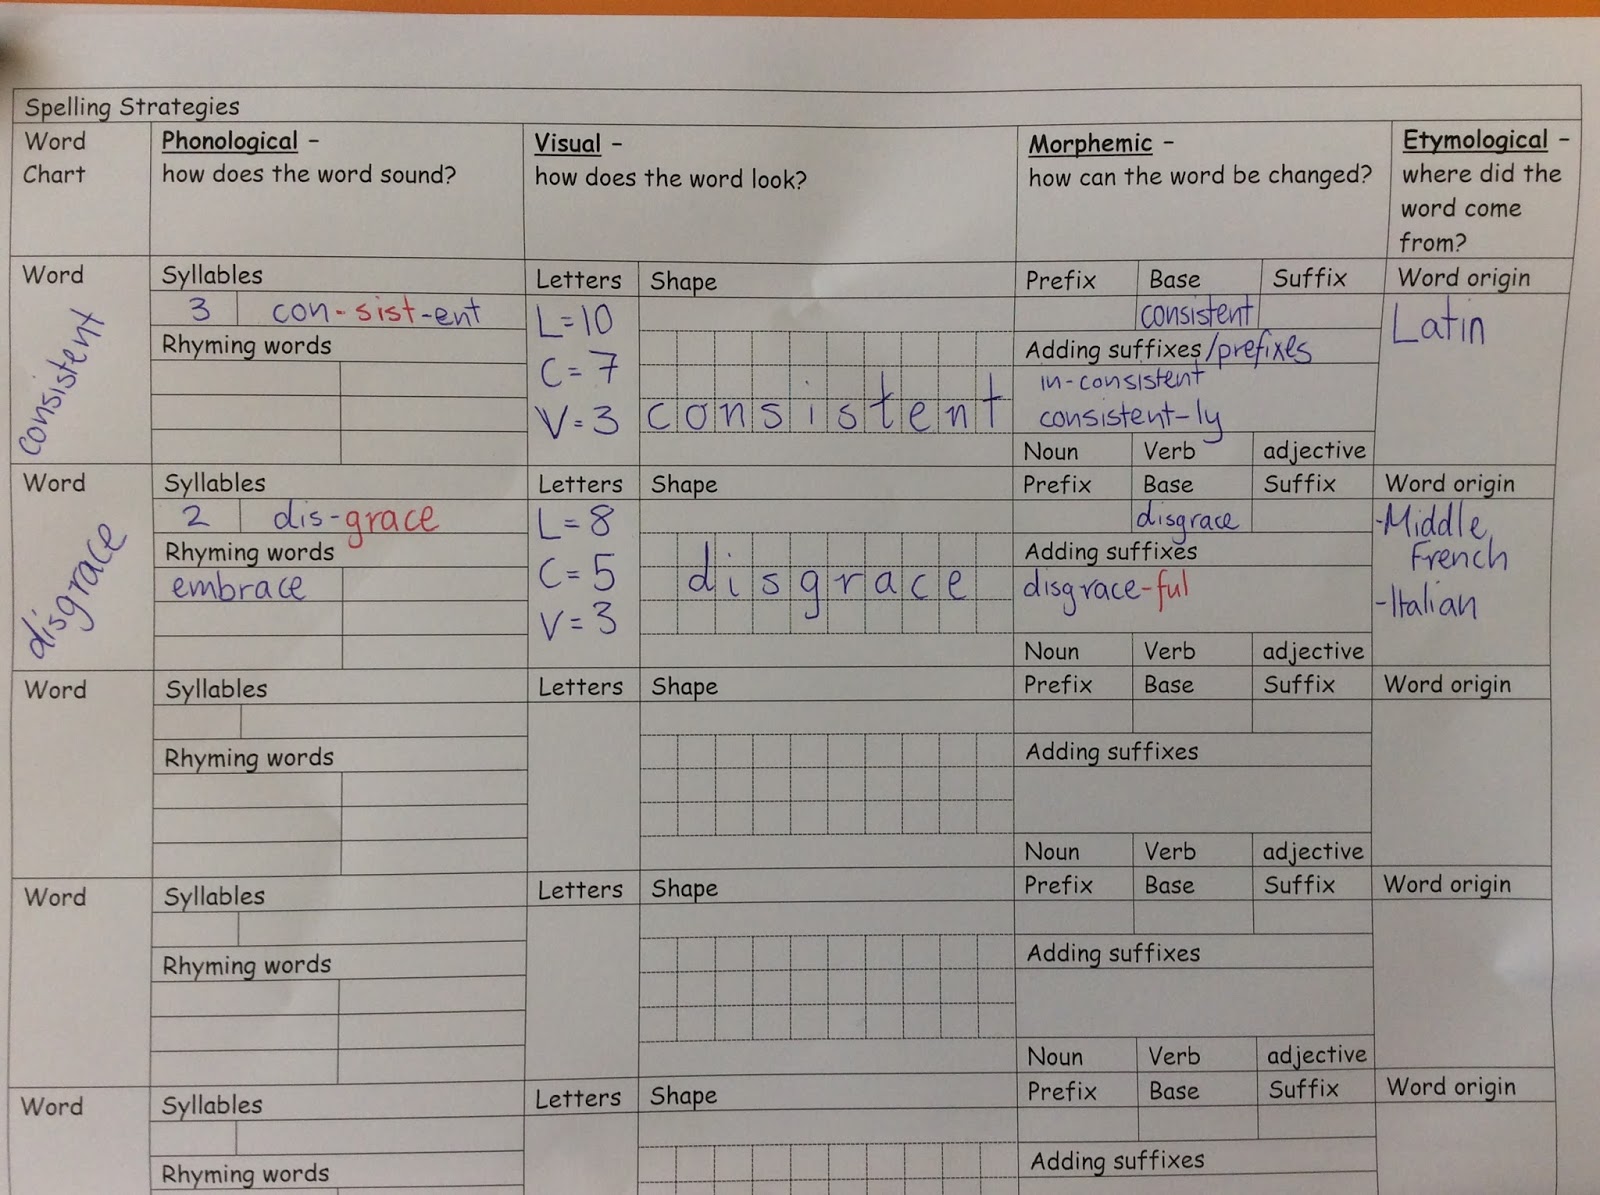 Spelling Strategies
Word Chart
Phonological -
how does the word sound?
Visual -
how does the word look?
Morphemic -
how can the word be changed?
Etymological -
where did the
word come
from?
Word
consistent
Syllables
3 con-sist-ent
Rhyming words
Letters
L=10
C=7
V=3
Shape
consistent
Prefix Base Suffix
consistent
Adding suffixes/prefixes
in-consistent
consistent-ly
Noun Verb adjective
Word origin
Latin
Word
disgrace
Syllables
2 dis-grace
Rhyming words
embrace
Letters
L=8
C=5
V=3
Shape
disgrace
Prefix Base Suffix
disgrace
Adding suffixes
disgrace-ful
Noun Verb adjective
Word origin
-Middle
French
-Italian
Word
Syllables
Rhyming words
Letters
Shape
Prefix Base Suffix
Adding suffixes
Noun Verb adjective
Word origin
Word
Syllables
Rhyming words
Letters
Shape
Prefix Base Suffix
Adding suffixes
Noun Verb adjective
Word origin
Word
Syllables
Rhyming words
Letters
Shape
Prefix Base Suffix
Adding suffixes
Word origin